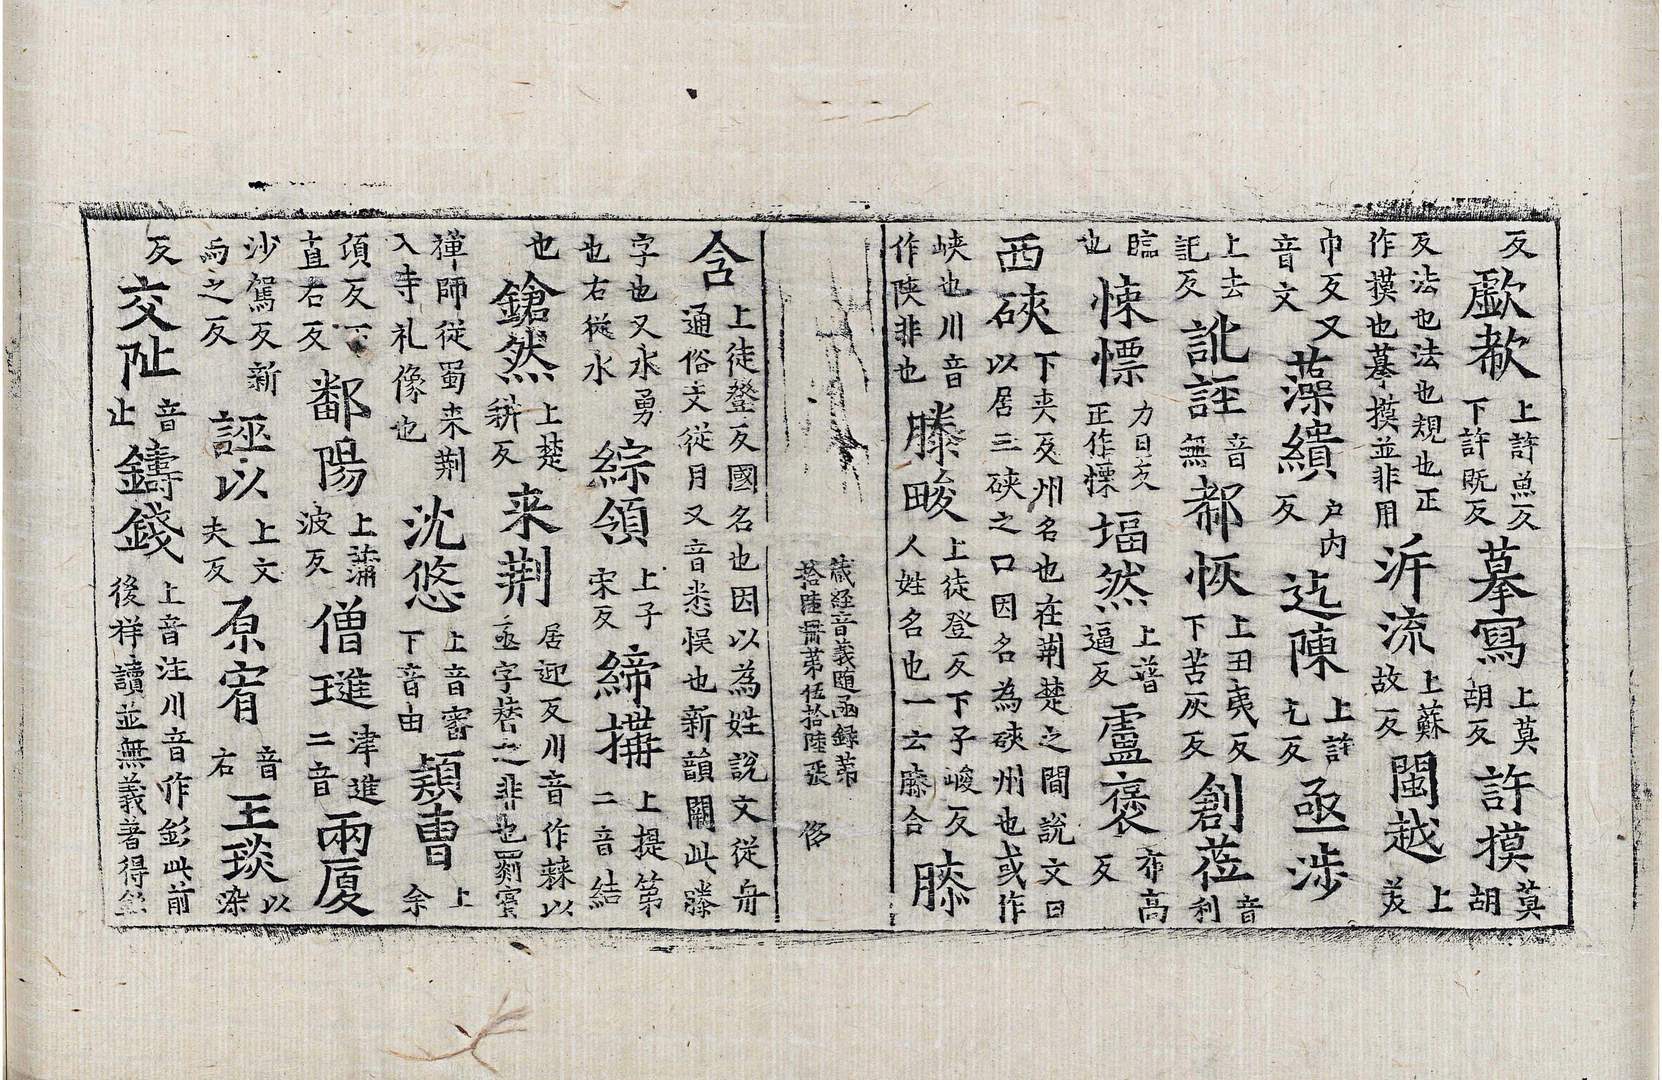 反歔欷上許魚反下許既反摹寫上莫胡反許摸莫胡
反法也法也規也正作摸也摹摸並非用泝流上蘇故反閩越上𦫵
巾反又音文藻繢戶内反迄陳上許乞反亟涉
上去記反訛誑音無都恢上田夷反下苦灰反創莅音利
臨也悚慄力日反正作慄堛然上普逼反盧褒布高反
西硤下夾反州名也在荆楚之間說文曰以居三硤之口因名為硤州也或作
峽也川音作陝非也滕畯上徒登反下子峻反人姓名也一云滕合滕
藏經音義隨函錄第
拾陸冊第伍拾陸張 侈
含上徒登反國名也因以為姓說文從舟通俗文從月又音悉悮也新韻闕此滕
字也又水勇也右從水綜領上子宋反締搆上提第二音結
也鎗然上楚耕反来荆居迎反川音作棘以亟字替之非也罽賓
禪師從蜀来荆入寺礼像也沈悠上音審下音由穎曺上余
傾反下直右反鄱陽上蒲波反僧璡津進二音兩厦
沙駕反新而之反誣以上文夫反原宥音右王琰以染
反交阯音止鑄錢上音注川音作彭此前後样讀並無義著得